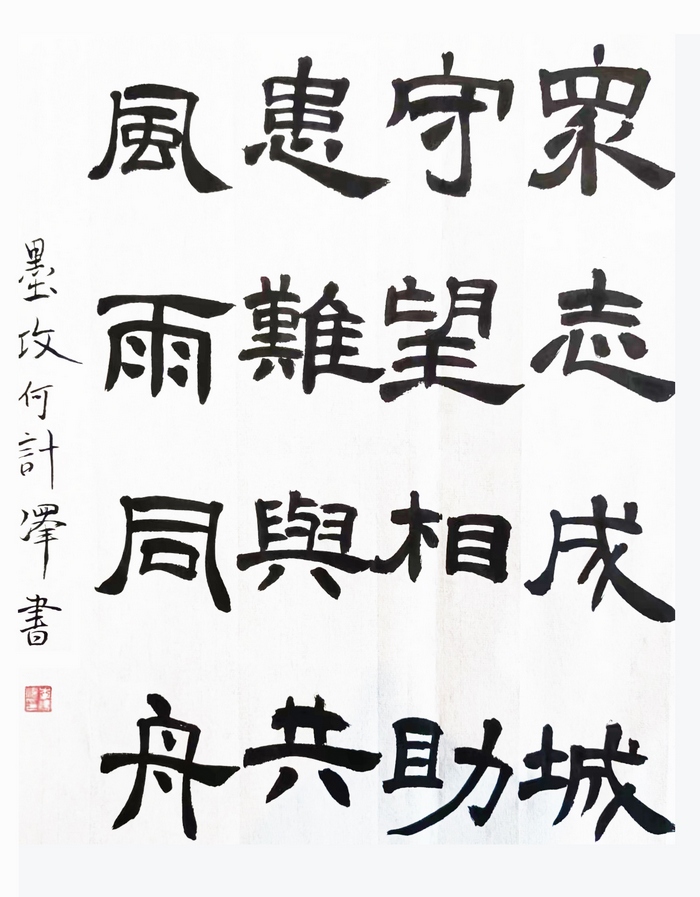 眾志成城
守望相助
患難與共
風雨同舟
墨攻何計澤書